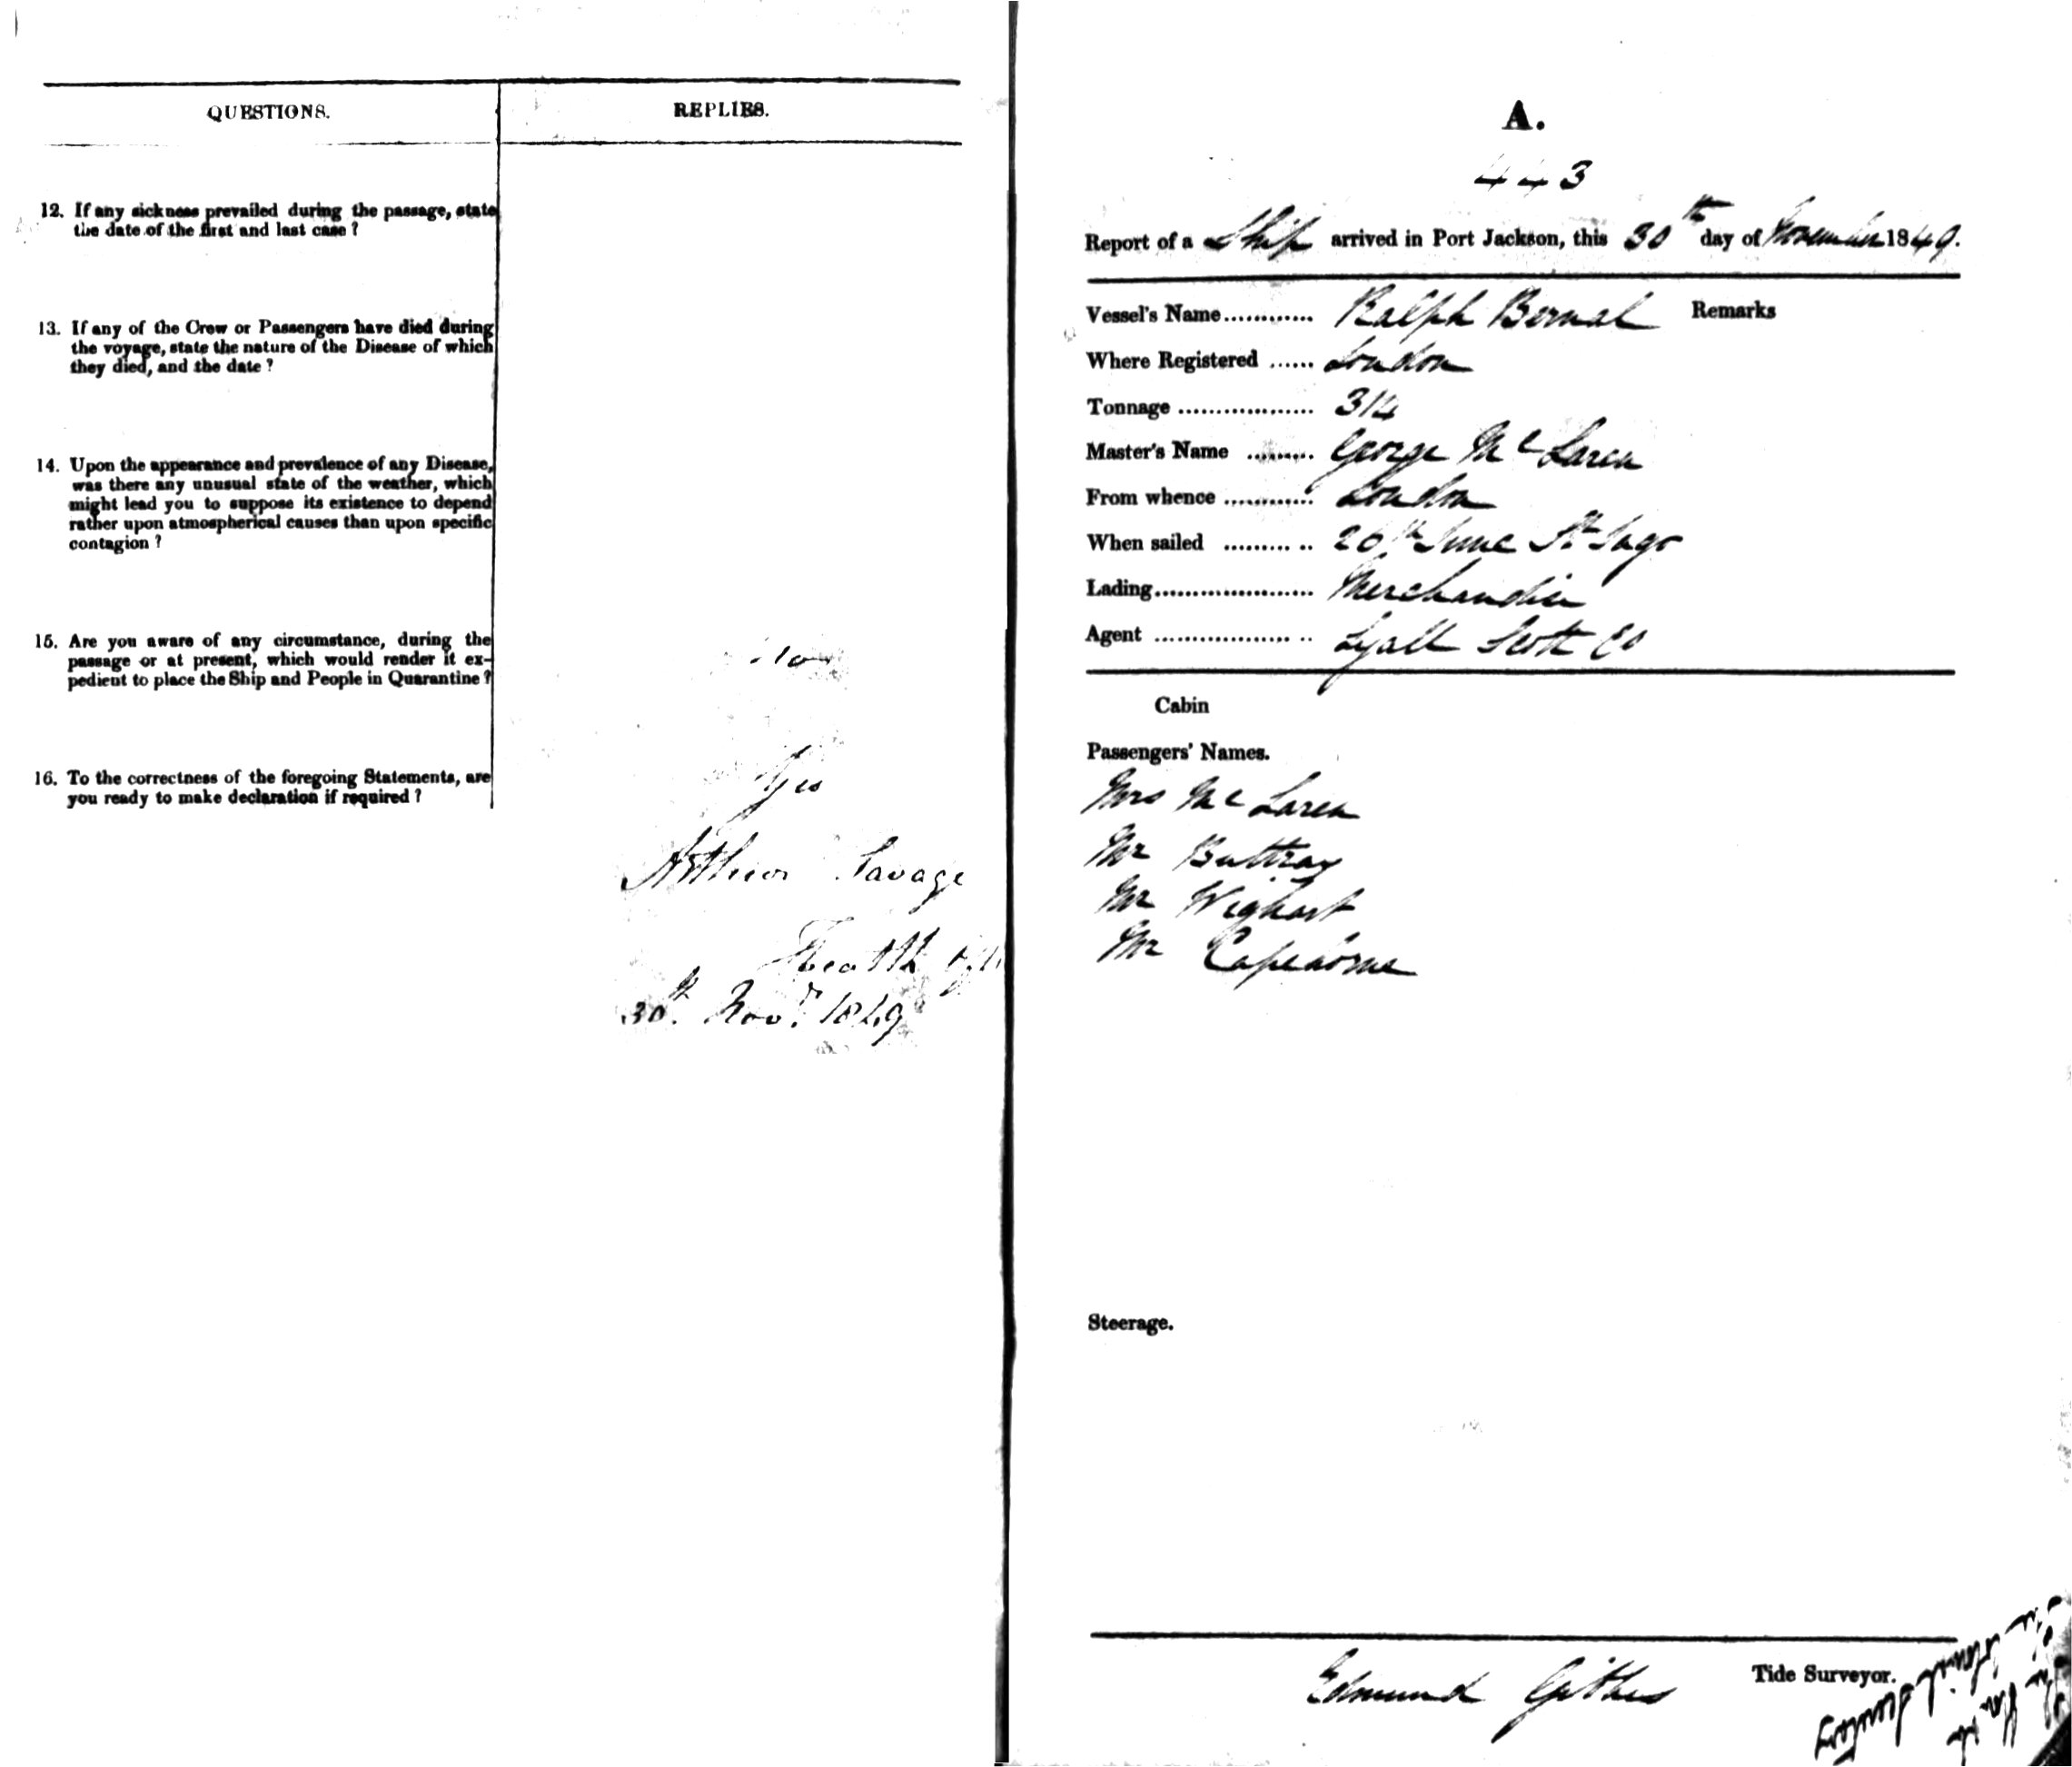 QUESTIONS.
REPLIES.
12. If any sickness prevailed during the passage, state
the date of the first and last case ?
13. If any of the Crew or Passengers have died during
the voyage, state the nature of the Disease of which
they died, and the date ?
14. Upon the appearance and prevalence of any Disease,
was there any unusual state of the weather, which
might lead you to suppose its existence to depend
rather upon atmospherical causes than upon specific
contagion ?
15. Are you aware of any circumstance, during the
passage or at present, which would render it ex-
pedient to place the Ship and People in Quarantine ?
No
16. To the correctness of the foregoing Statements, are
you ready to make declaration if required ?
Yes
Arthur Savage
Health
30th Novr 1849
A.
443
Report of a Ship arrived in Port Jackson, this 30th day of November 1849.
Vessel's Name ............ Ralph Bernal Remarks
Where Registered ...... London
Tonnage .................. 314
Master's Name ......... George Mc Laren
From whence ............ London
When sailed ......... .. 26th June St Jago
Lading ..................... Merchandise
Agent .................. .. Lyall Scott Co
Cabin
Passengers' Names.
Mrs Mc Laren
Mr Buttray
Mr Wighart
Mr Capehorne
Steerage.
Edmund Gibbes Tide Surveyor.